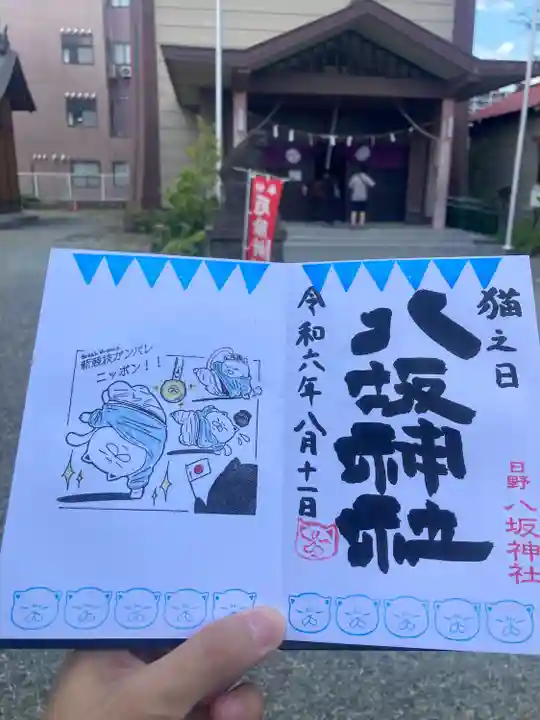 新競技ガンバレ
ニッポン！！
猫之日
八坂神社
令和六年八月十一日
日野
八坂神社